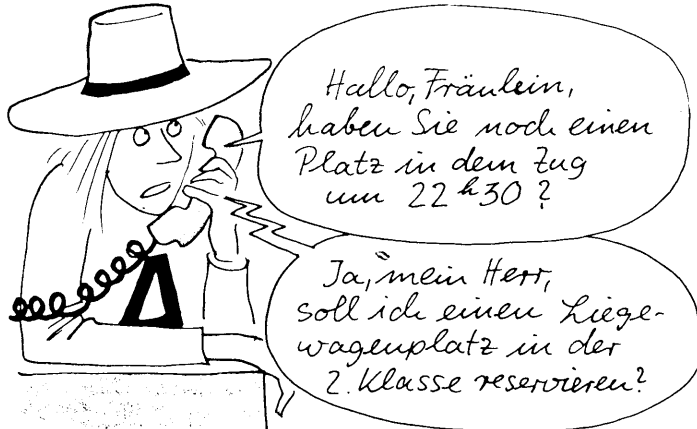 Hallo, Fräulein,
haben Sie noch einen
Platz in dem Zug
um 22 h 30 ?
Ja, mein Herr,
soll ich einen Liege-
wagenplatz in der
2. Klasse reservieren?